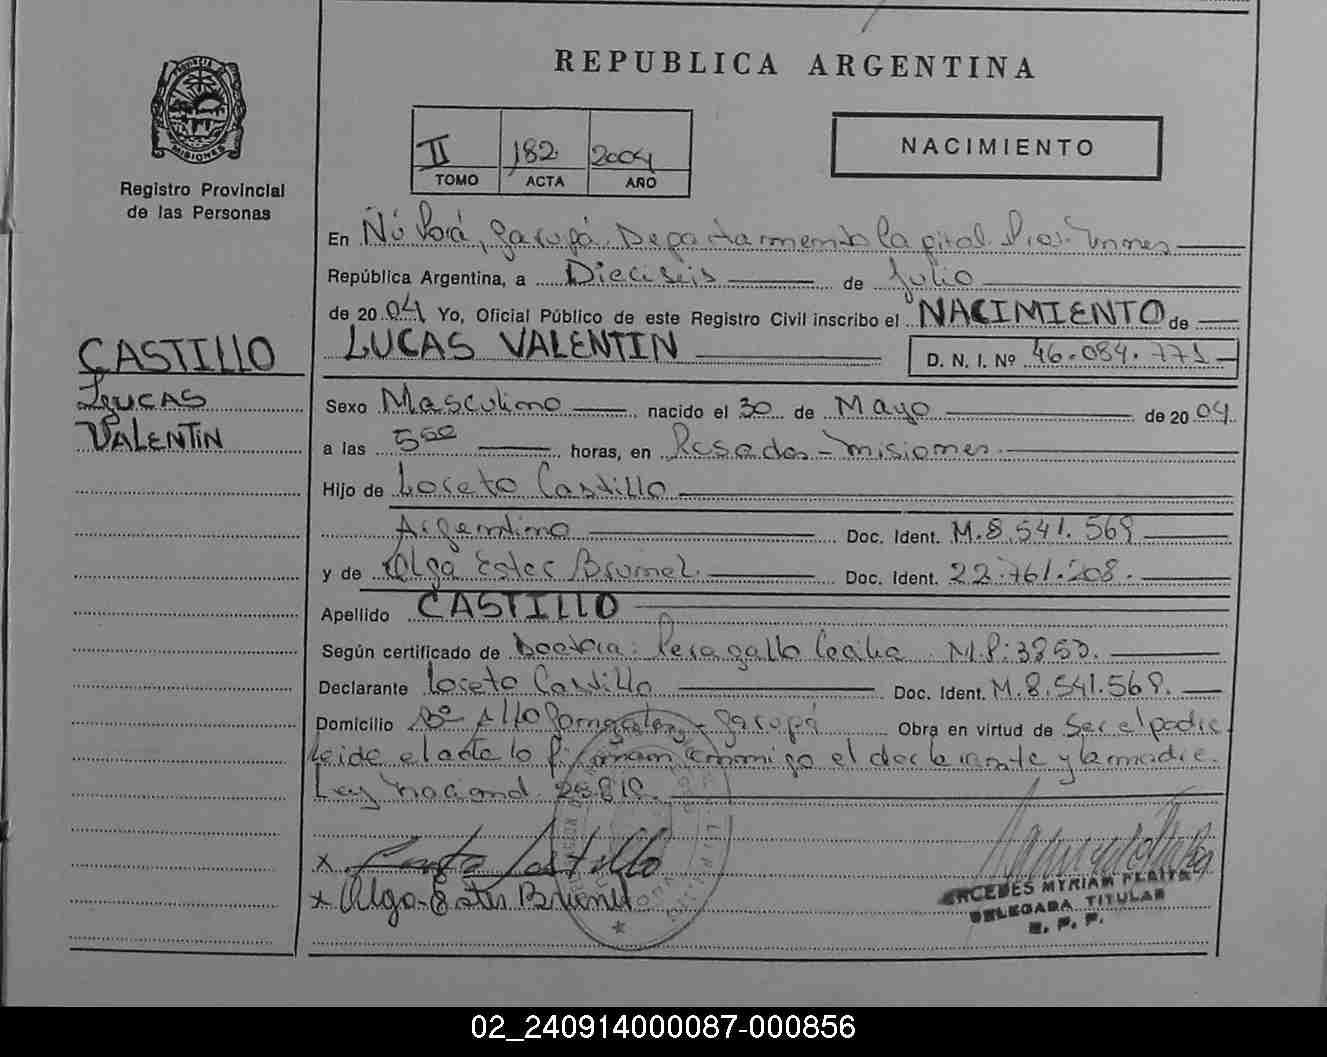 REPUBLICA ARGENTINA
PROVINCIA DE MISIONES
Registro Provincial
de las Personas
II 182 2004
TOMO ACTA AÑO
NACIMIENTO
En Ñú Porá, Garupá, Departamento Capital
República Argentina, a Dieciseis de Julio
de 2004 Yo, Oficial Público de este Registro Civil inscribo el NACIMIENTO de
LUCAS VALENTIN D. N. I. Nº 46.084.771
CASTILLO
LUCAS
VALENTIN
Sexo Masculino nacido el 30 de Mayo de 2004
a las 5 00 horas, en Posadas - Misiones
Hijo de Loreto Castillo
Argentino Doc. Ident. M.8.541.569
y de Olga Ester Brumel Doc. Ident. 22.761.208.
Apellido CASTILLO
Según certificado de Doctora: Peragallo Cecilia M.P: 3850.
Declarante Loreto Castillo Doc. Ident. M.8.541.569.
Domicilio Bº Garupá Obra en virtud de Ser el padre
leida el acta lo firman conmigo el declarante y la madre.
Ley nacional
x Castillo
x Olga Ester
MYRIAM PERITA
DELEGADA TITULAR
R. P. P.
02_240914000087-000856